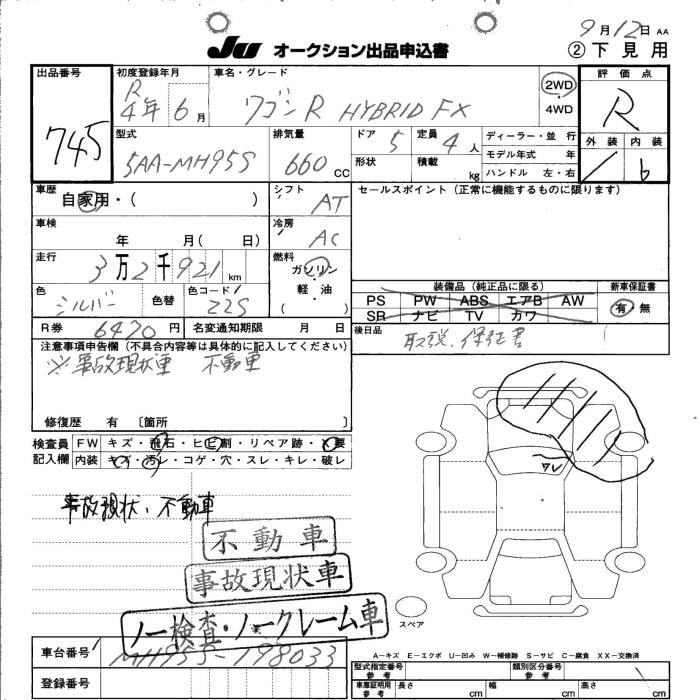 9月12日 AA
JU オークション出品申込書 ②下見用
出品番号 初度登録年月 車名・グレード 評価点
745 R4年6月 ワゴンR HYBRID FX 2WD・4WD R
型式 排気量 ドア 5 定員 4人 ディーラー・並行 外装 内装
5AA-MH95S 660cc 形状 積載 kg モデル年式 年
ハンドル 左・右 b
車歴 シフト セールスポイント(正常に機能するものに限ります)
自家用・( ) AT
車検 冷房
年 月( 日) AC
走行 燃料
3万2千921km ガソリン・軽・油 ( )
装備品(純正品に限る) 新車保証書
色 色替 色コード PS PW ABS エアB AW 有・無
シルバー Z2S SR ナビ TV カワ
R券 6470円 名変通知期限 月 日 後日品 取説、保証書
注意事項申告欄(不具合内容等は具体的に記入してください)
※事故現状車 不動車
修復歴 有 〔箇所 〕
検査員 FW キズ・飛石・ヒビ割・リペア跡・X要
記入欄 内装 キズ・汚レ・コゲ・穴・スレ・キレ・破レ
ワレ
事故現状、不動車
不動車
事故現状車
ノー検査・ノークレーム車
スペア
車台番号 MH95S-198033
A-キズ E-エクボ U-凹み W-補修跡 S-サビ C-腐食 XX-交換済
型式指定番号 参考 類別区分番号 参考
登録番号
車庫証明用 参考 長さ cm 幅 cm 高さ cm